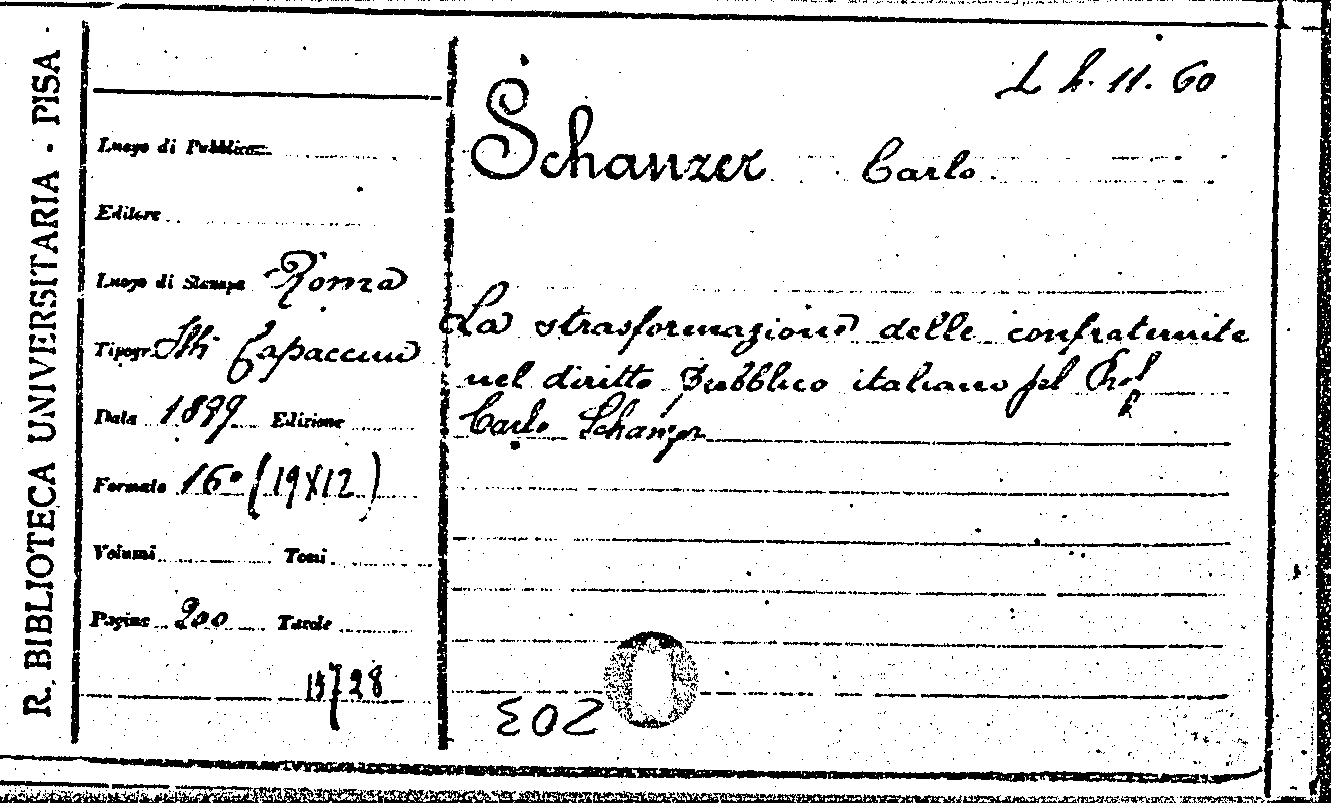 R. BIBLIOTECA UNIVERSITARIA - PISA
L h. 11. 60
Schanzer Carlo
Luogo di Pubblicaz.
Editore
Luogo di Stampa Roma
Tipogr. Flli Capaccini
Data 1899 Edizione
Formato 16° (19X12)
Volumi Tomi
Pagine 200 Tavole
La trasformazione delle confraternite
nel diritto pubblico italiano pel Prof
Carlo Schanzer
203